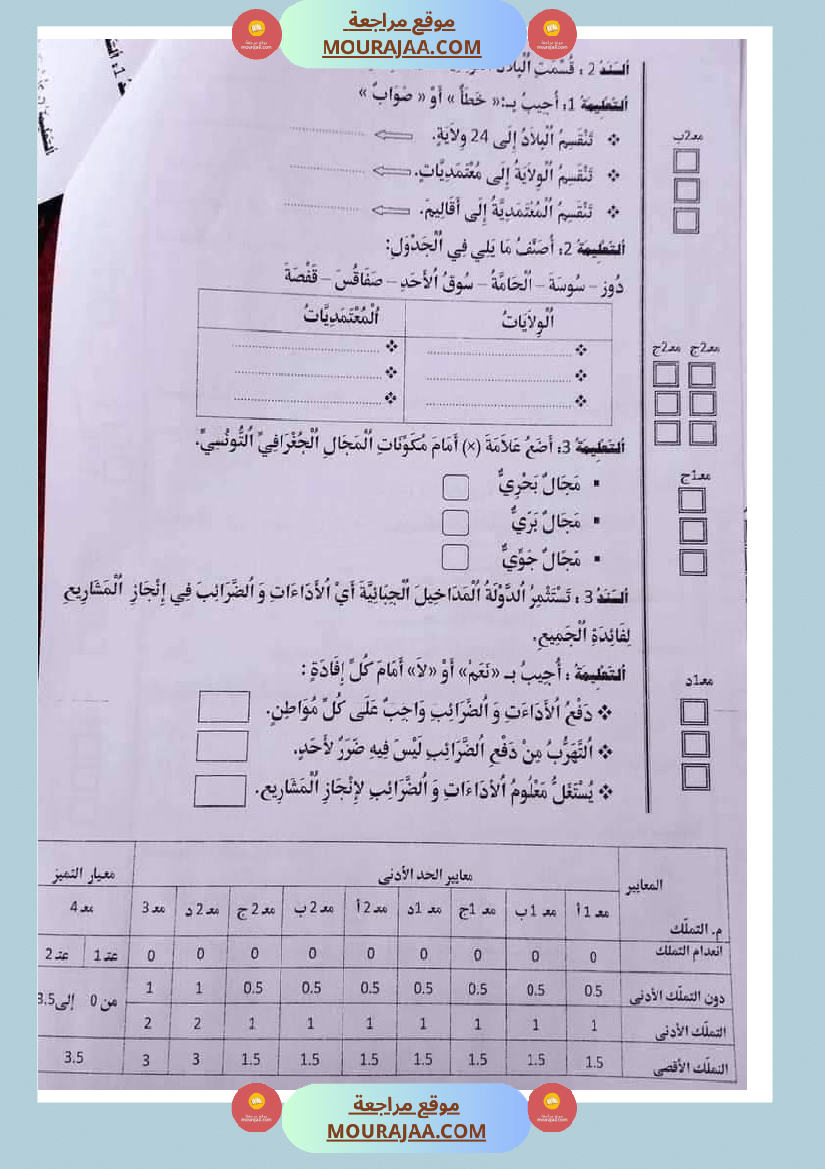 موقع مراجعة
MOURAJAA.COM
اَلسَّنَدُ 2 : قُسِّمَتِ اَلْبِلَادُ
اَلتَّعْلِيمَةُ 1: أُجِيبُ بِـ:« خَطَأٌ » أَوْ « صَوَابٌ »
معـ2ب
❖ تَنْقَسِمُ اَلْبِلاَدُ إِلَى 24 وِلاَيَةٍ. ..................
❖ تَنْقَسِمُ اَلْوِلاَيَةُ إِلَى مُعْتَمَدِيَّاتٍ. ..................
❖ تَنْقَسِمُ اَلْمُعْتَمَدِيَّةُ إِلَى أَقَالِيمَ. ..................
اَلتَّعْلِيمَةُ 2: أُصَنِّفُ مَا يَلِي فِي اَلْجَدْوَلِ:
دُوز – سُوسَةَ – اَلْحَامَّةُ – سُوقُ اَلأَحَدِ – صَفَاقُسَ – قَفْصَةَ
اَلْوِلاَيَاتُ اَلْمُعْتَمَدِيَّاتُ
معـ2ج معـ2ج
❖ .................. ❖ ..................
❖ .................. ❖ ..................
❖ .................. ❖ ..................
اَلتَّعْلِيمَةُ 3: أَضَعُ عَلاَمَةَ (×) أَمَامَ مُكَوِّنَاتِ اَلْمَجَالِ اَلْجُغْرَافِيِّ اَلتُّونُسِيِّ.
معـ1ج
▪ مَجَالٌ بَحْرِيٌّ
▪ مَجَالٌ بَرِّيٌّ
▪ مَجَالٌ جَوِّيٌّ
اَلسَّنَدُ 3 : تَسْتَثْمِرُ اَلدَّوْلَةُ اَلْمَدَاخِيلَ اَلْجِبَائِيَّةَ أَيْ اَلأَدَاءَاتِ وَ اَلضَّرَائِبَ فِي إِنْجَازِ اَلْمَشَارِيعِ
لِفَائِدَةِ اَلْجَمِيعِ.
اَلتَّعْلِيمَةُ : أُجِيبُ بِـ «نَعَمْ» أَوْ «لاَ» أَمَامَ كُلِّ إِفَادَةٍ :
معـ1د
❖ دَفْعُ اَلأَدَاءَتِ وَ اَلضَّرَائِبِ وَاجِبٌ عَلَى كُلِّ مُوَاطِنٍ.
❖ اَلتَّهَرُّبُ مِنْ دَفْعِ اَلضَّرَائِبِ لَيْسَ فِيهِ ضَرَرٌ لأَحَدٍ.
❖ يُسْتَغَلُّ مَعْلُومُ اَلأَدَاءَاتِ وَ اَلضَّرَائِبِ لإِنْجَازِ اَلْمَشَارِيعِ.
المعايير معايير الحد الأدنى معيار التميز
م. التملّك معـ 1 أ معـ 1 ب معـ 1ج معـ 1د معـ 2 أ معـ 2 ب معـ 2 ج معـ 2 د معـ 3 معـ 4
انعدام التملك 0 0 0 0 0 0 0 0 0 عتـ 1 عتـ 2
دون التملّك الأدنى 0.5 0.5 0.5 0.5 0.5 0.5 0.5 1 1 من 0 إلى 3.5
التملّك الأدنى 1 1 1 1 1 1 1 2 2
التملّك الأقصى 1.5 1.5 1.5 1.5 1.5 1.5 1.5 3 3 3.5
موقع مراجعة
MOURAJAA.COM